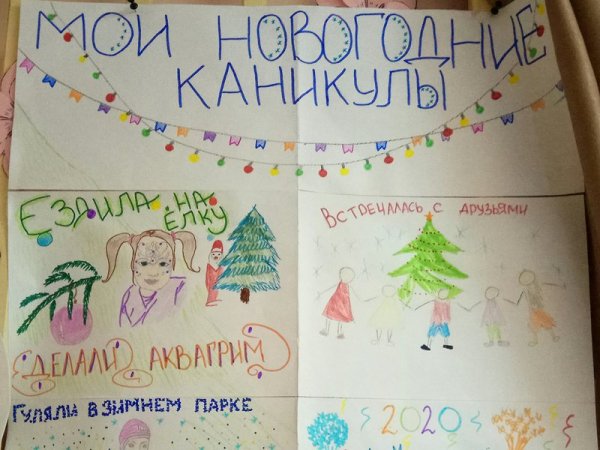 МОИ НОВОГОДНИЕ
КАНИКУЛЫ
ЕЗДИЛА НА
ЁЛКУ
ДЕЛАЛИ АКВАГРИМ
ВСТРЕЧАЛАСЬ С ДРУЗЬЯМИ
ГУЛЯЛИ В ЗИМНЕМ ПАРКЕ
2020